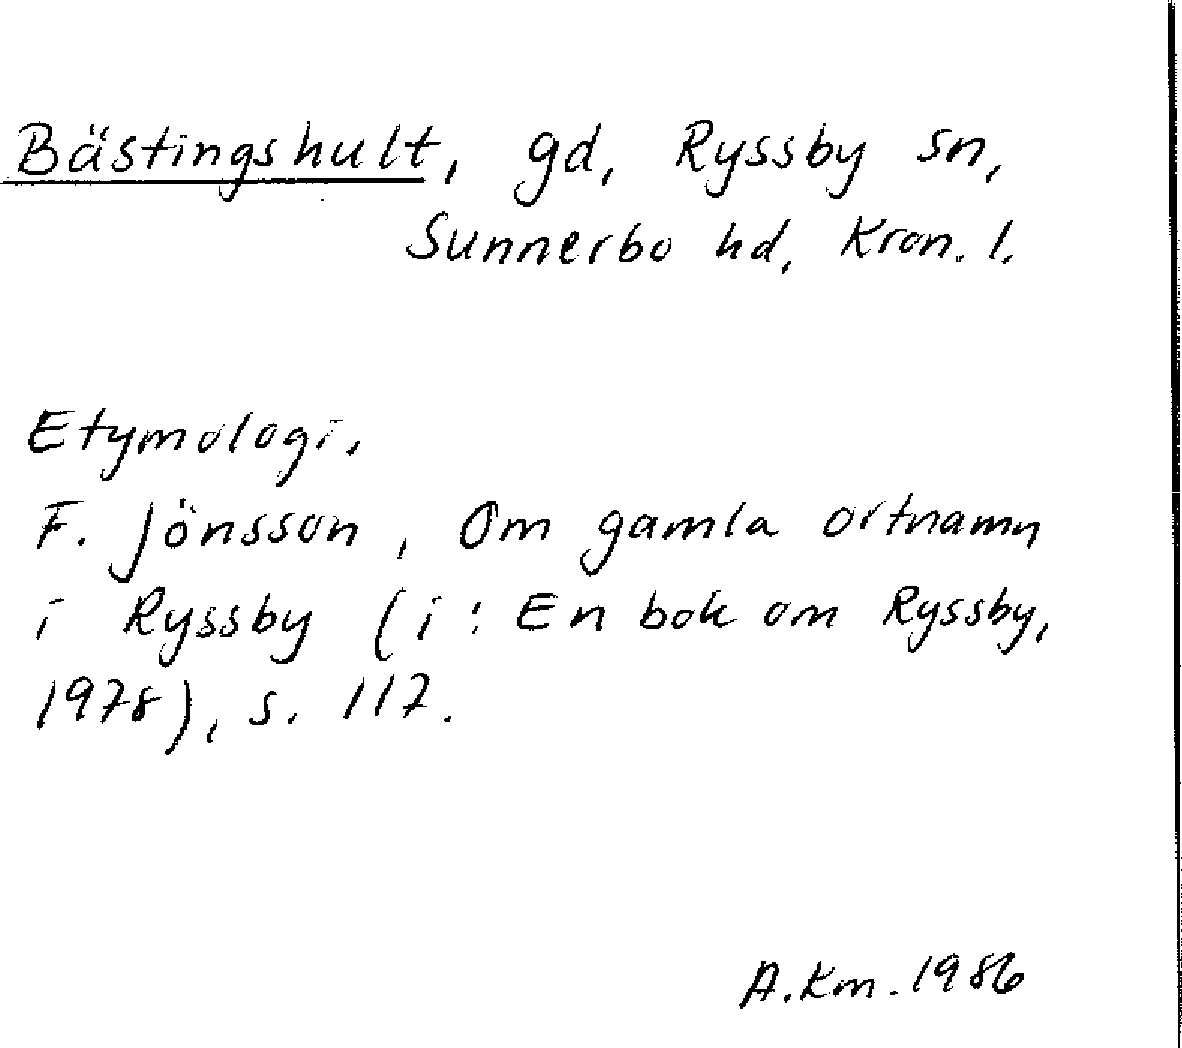 Bästingshult, gd, Ryssby sn,
Sunnerbo hd, Kron. l.
Etymologi.
F. Jönsson, Om gamla ortnamn
i Ryssby (i: En bok om Ryssby,
1978), s. 117.
A.Km. 1986